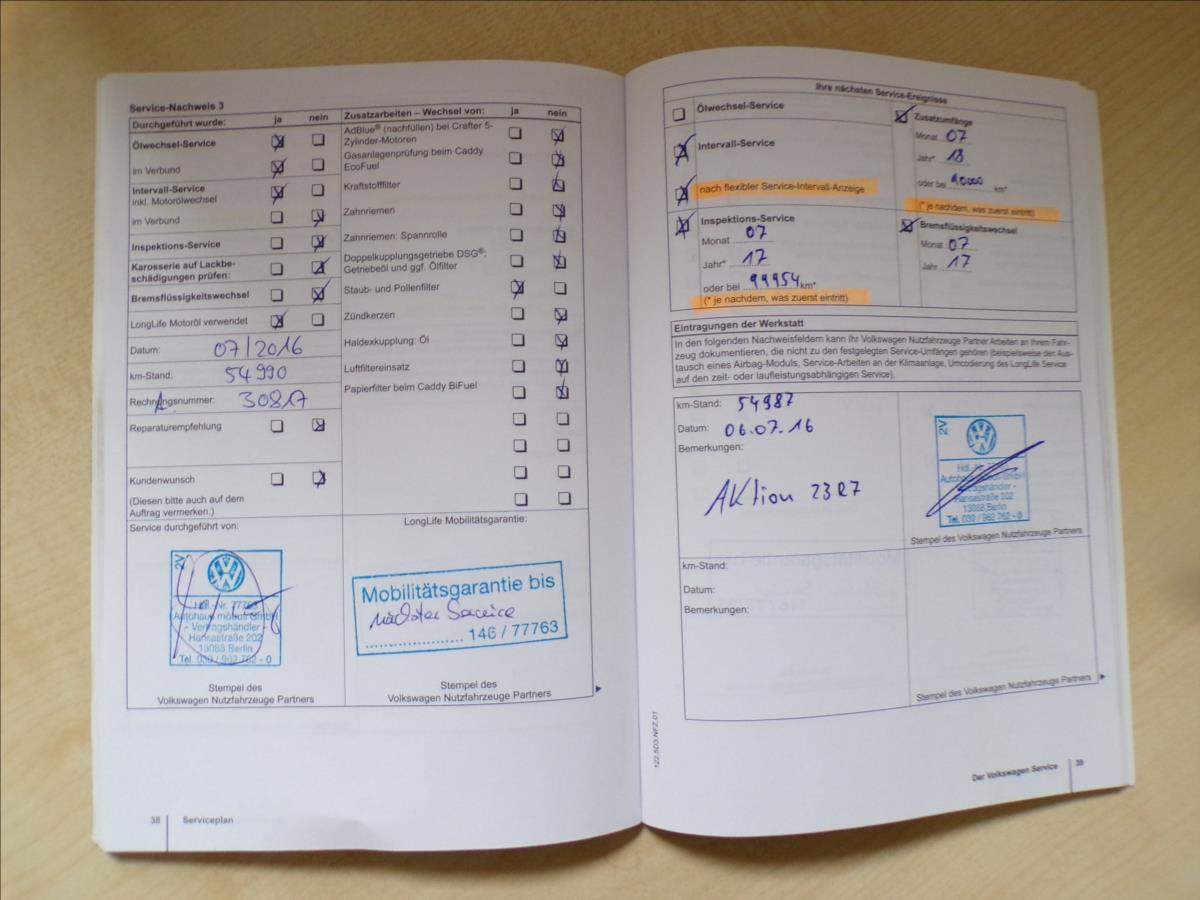 Service-Nachweis 3
Durchgeführt wurde: ja nein
Ölwechsel-Service
im Verbund
Intervall-Service
inkl. Motorölwechsel
im Verbund
Inspektions-Service
Karosserie auf Lackbe-
schädigungen prüfen:
Bremsflüssigkeitswechsel
LongLife Motoröl verwendet
Datum: 07/2016
km-Stand: 54990
Rechnungsnummer: 30817
Reparaturempfehlung
Kundenwunsch
(Diesen bitte auch auf dem
Auftrag vermerken.)
Zusatzarbeiten – Wechsel von: ja nein
AdBlue® (nachfüllen) bei Crafter 5-
Zylinder-Motoren
Gasanlagenprüfung beim Caddy
EcoFuel
Kraftstofffilter
Zahnriemen
Zahnriemen: Spannrolle
Doppelkupplungsgetriebe DSG®:
Getriebeöl und ggf. Ölfilter
Staub- und Pollenfilter
Zündkerzen
Haldexkupplung: Öl
Luftfiltereinsatz
Papierfilter beim Caddy BiFuel
Service durchgeführt von:
2V
Hdl.-Nr. 77763
Autohaus möbus GmbH
- Vertragshändler -
Hansastraße 202
13088 Berlin
Tel. 030 / 962 762 - 0
Stempel des
Volkswagen Nutzfahrzeuge Partners
LongLife Mobilitätsgarantie:
Mobilitätsgarantie bis
nächster Service
146 / 77763
Stempel des
Volkswagen Nutzfahrzeuge Partners
38 Serviceplan
Ihre nächsten Service-Ereignisse
Ölwechsel-Service
Intervall-Service
nach flexibler Service-Intervall-Anzeige
Inspektions-Service
Monat 07
Jahr* 17
oder bei 99954 km*
(* je nachdem, was zuerst eintritt)
Zusatzumfänge
Monat 07
Jahr* 18
oder bei 90000 km*
(* je nachdem, was zuerst eintritt)
Bremsflüssigkeitswechsel
Monat 07
Jahr 17
Eintragungen der Werkstatt
In den folgenden Nachweisfeldern kann Ihr Volkswagen Nutzfahrzeuge Partner Arbeiten an Ihrem Fahr-
zeug dokumentieren, die nicht zu den festgelegten Service-Umfängen gehören (beispielsweise den Aus-
tausch eines Airbag-Moduls, Service-Arbeiten an der Klimaanlage, Umcodierung des LongLife Service
auf den zeit- oder laufleistungsabhängigen Service).
km-Stand: 54987
Datum: 06.07.16
Bemerkungen:
Aktion 23R7
2V
Hdl.-Nr.
Autohaus
- Vertragshändler -
Hansastraße 202
13088 Berlin
Tel. 030 / 962 762 - 0
Stempel des Volkswagen Nutzfahrzeuge Partners
km-Stand:
Datum:
Bemerkungen:
Stempel des Volkswagen Nutzfahrzeuge Partners
122.5D3.NFZ.01
Der Volkswagen Service 39